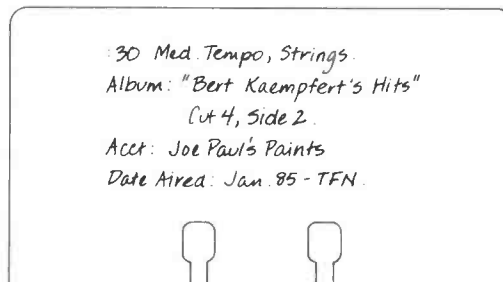 :30 Med. Tempo, Strings.
Album: "Bert Kaempfert's Hits"
Cut 4, Side 2.
Acct: Joe Paul's Paints
Date Aired: Jan. 85 - TFN.